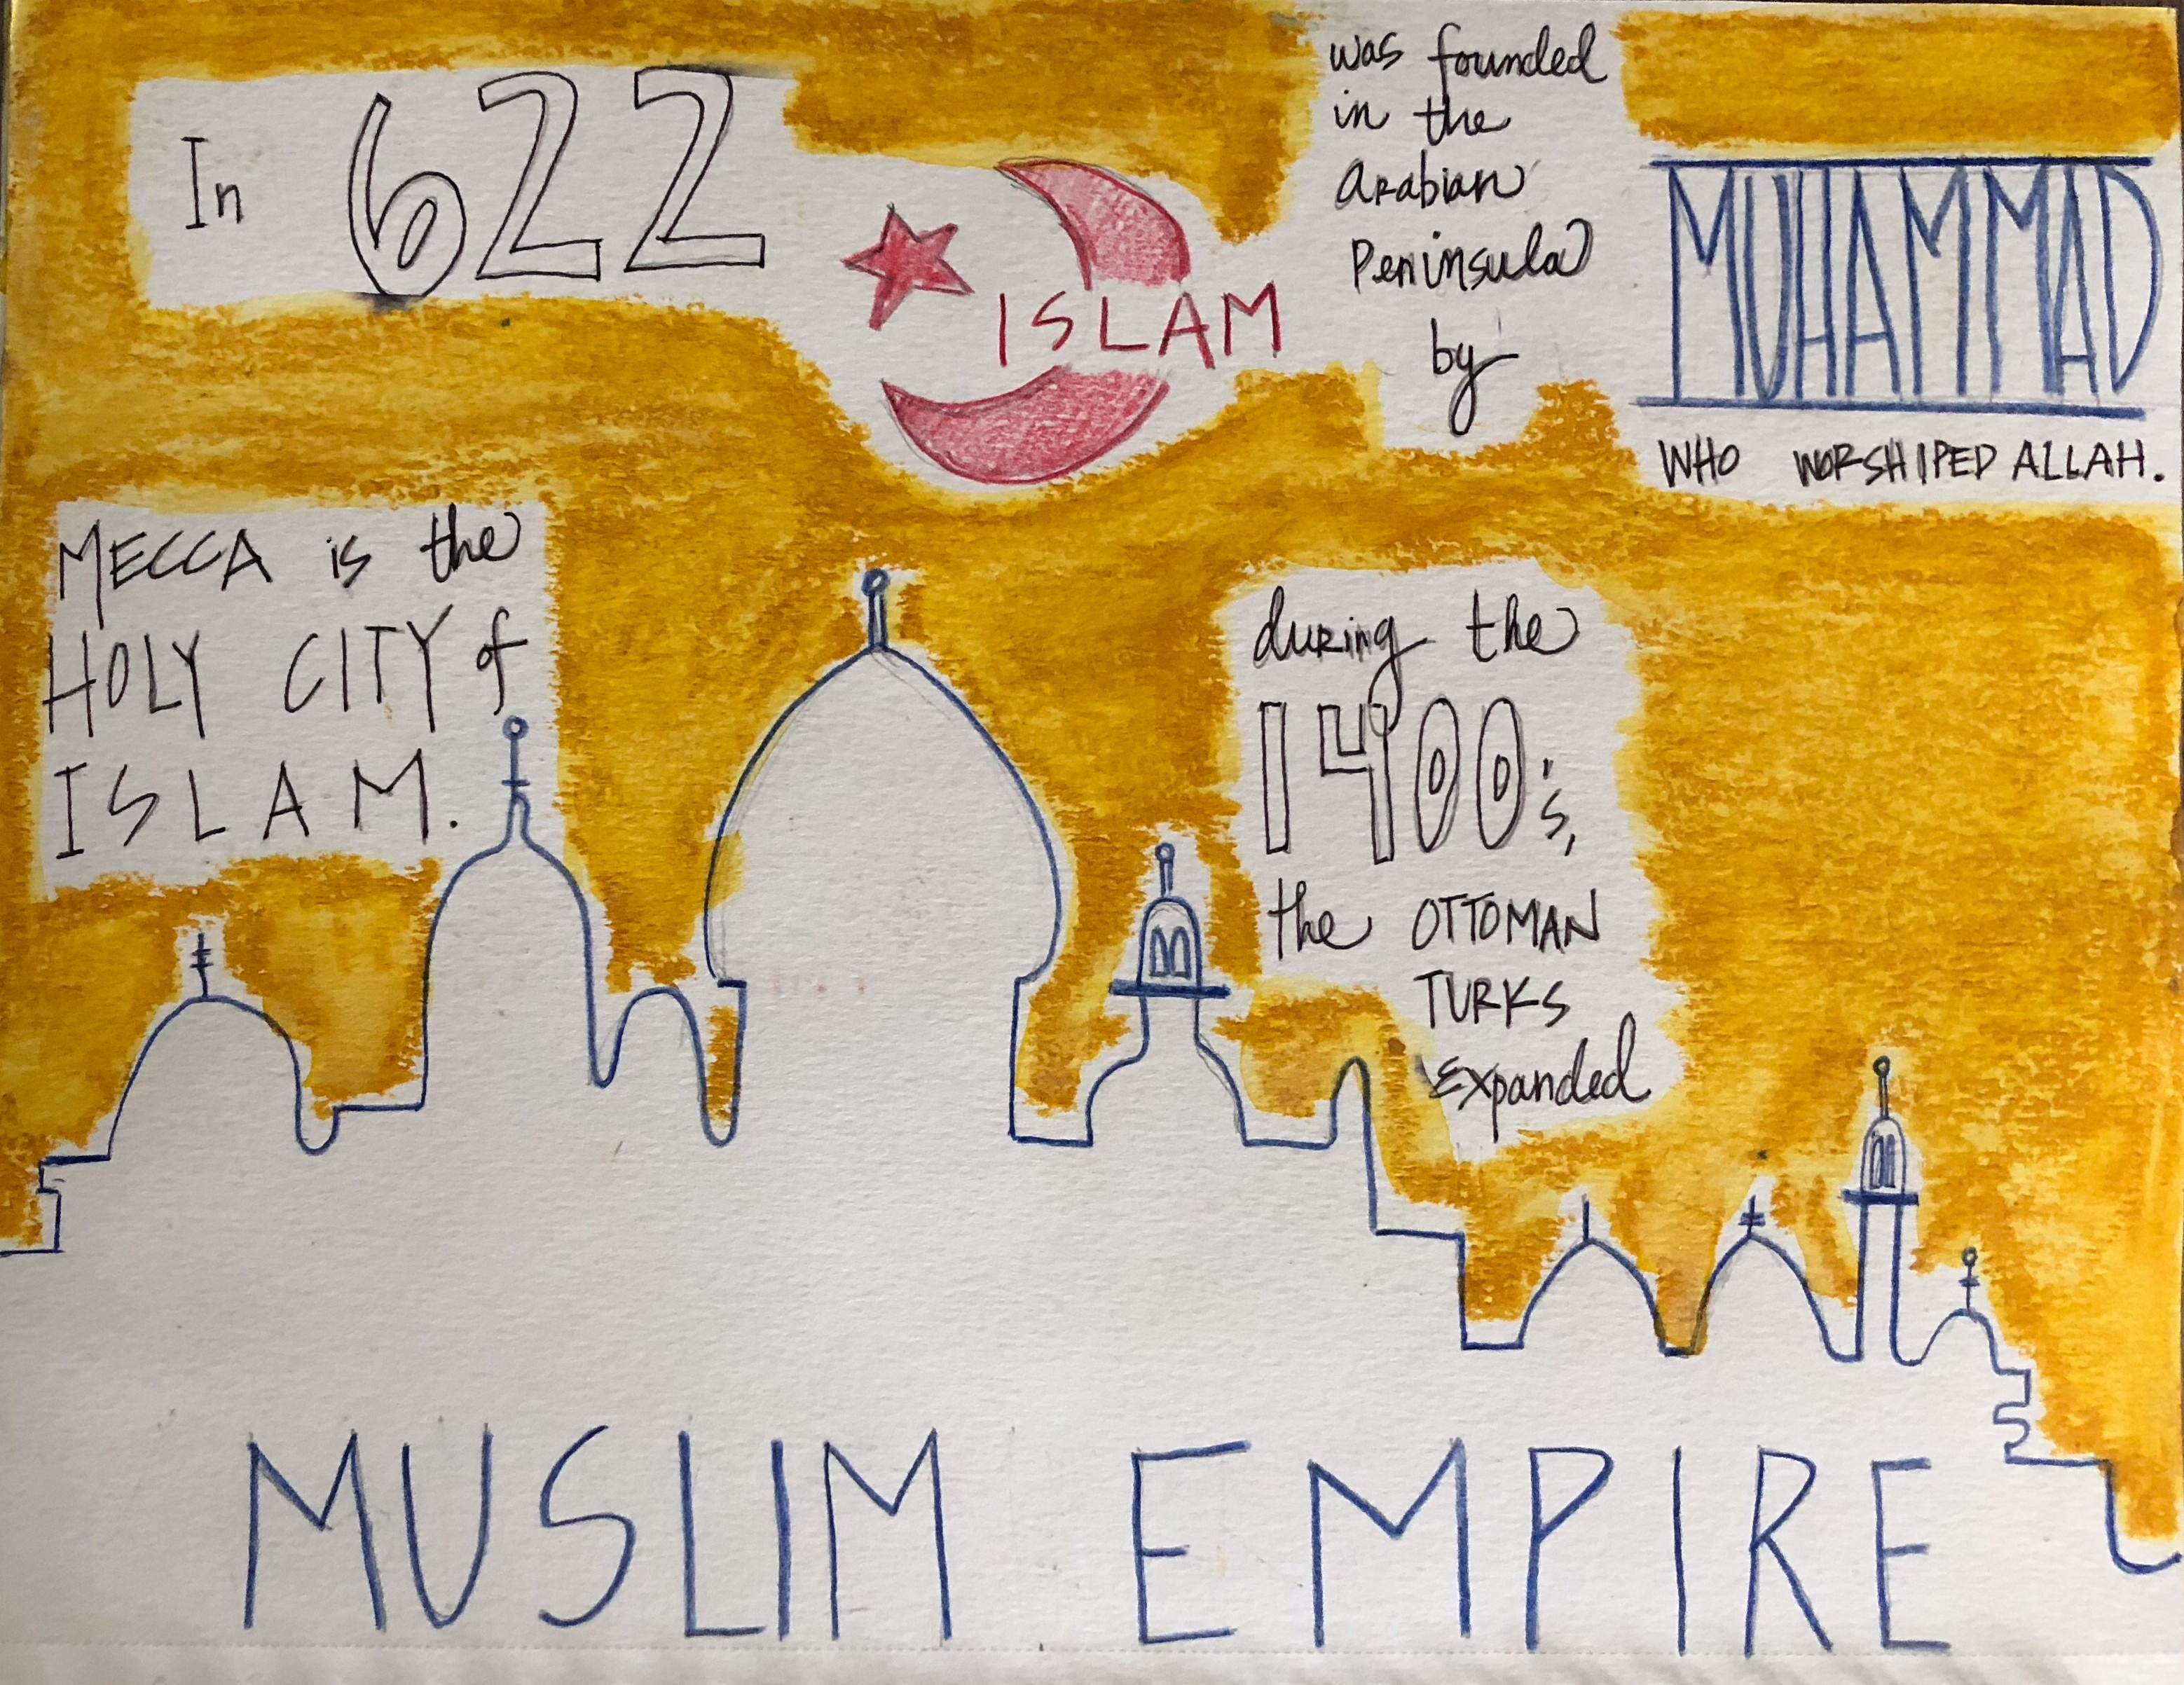 In 622
ISLAM
was founded
in the
Arabian
Peninsula
by
MUHAMMAD
WHO WORSHIPED ALLAH.
MECCA is the
HOLY CITY of
ISLAM.
during the
1400's,
the OTTOMAN
TURKS
Expanded
MUSLIM EMPIRE